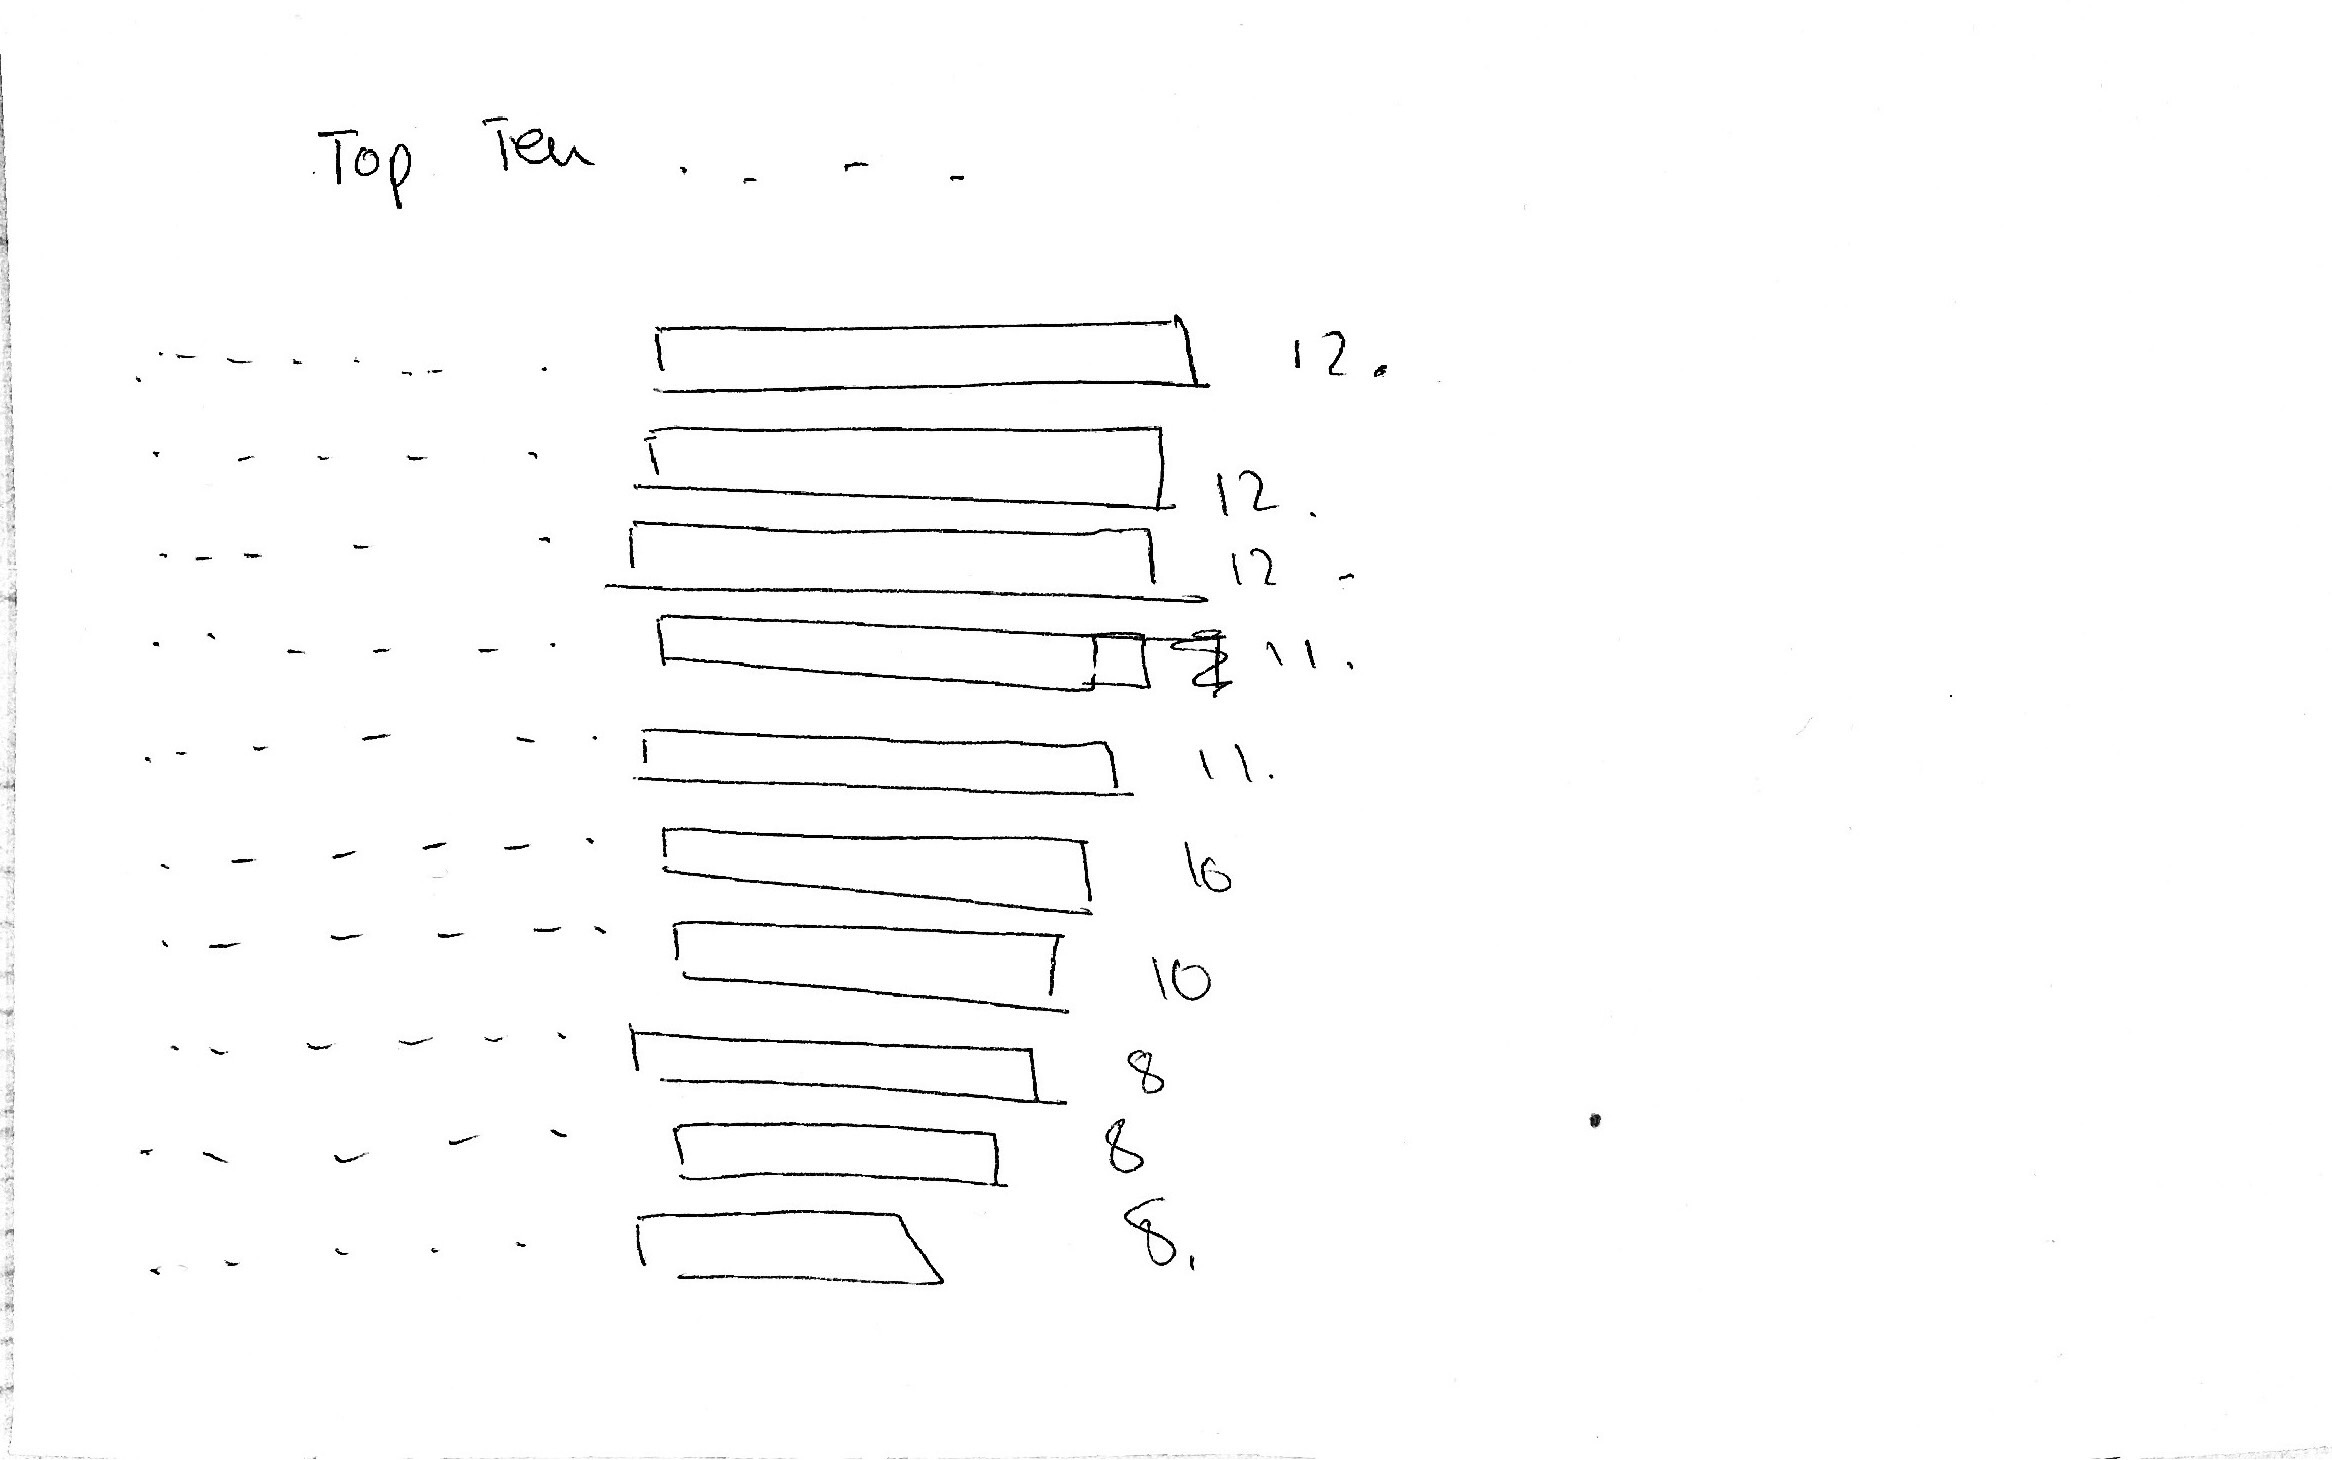 Top Ten . . - -
12.
12.
12 -
11.
11.
10
10
8
8
8.